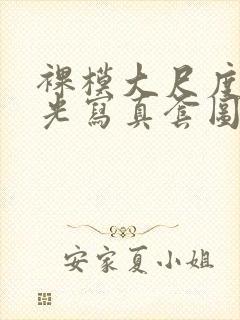 裸模大尺度
光寫真套圖
安家夏小姐